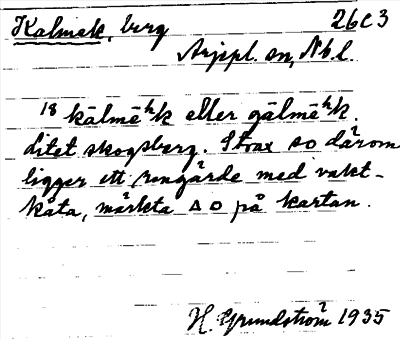 Kalmek, berg 26c3
Arjepl. sn, Nbl.
18 kālmēʰk eller gālmēʰk.
litet skogsberg. Strax so därom
ligger ett rengärde med vakt-
kåta, märkta ∆ o på kartan.
H. Grundström 1935